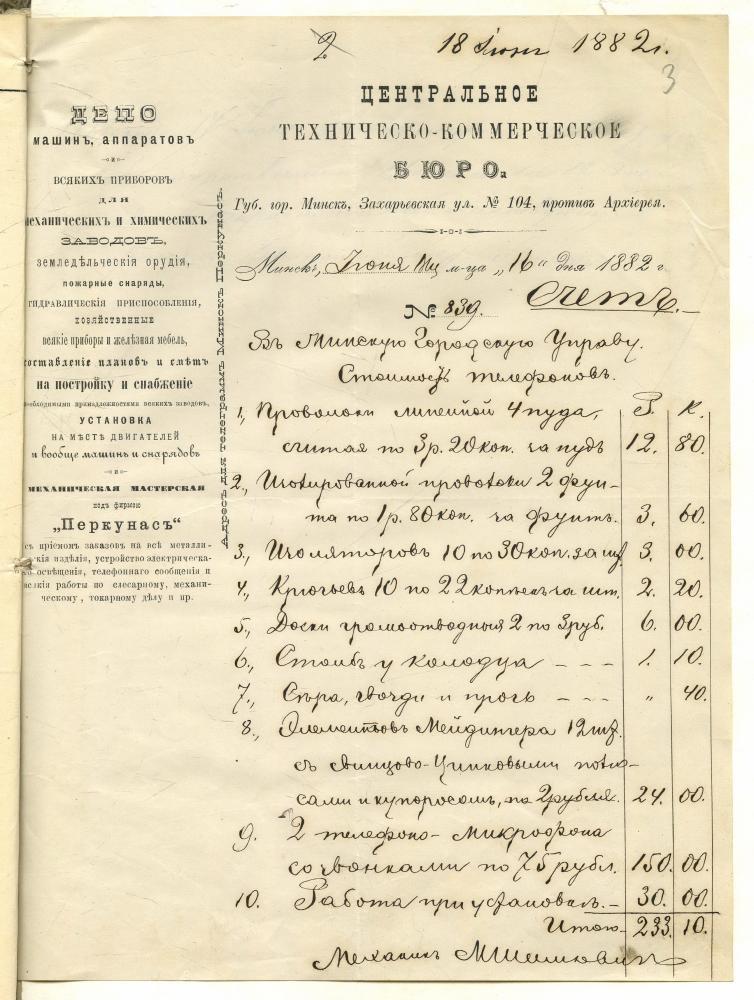 2
18 Июня 1882 г.
3
ДЕПО
машинъ, аппаратовъ
и
ВСЯКИХЪ ПРИБОРОВЪ
ДЛЯ
механическихъ и химическихъ
ЗАВОДОВЪ,
земледѣльческія орудія,
пожарные снаряды,
гидравлическія приспособленія,
хозяйственные
всякіе приборы и желѣзная мебель,
составленіе плановъ и смѣтъ
на постройку и снабженіе
необходимыми принадлежностями всякихъ заводовъ,
УСТАНОВКА
НА МѢСТѢ ДВИГАТЕЛЕЙ
и вообще машинъ и снарядовъ
и
МЕХАНИЧЕСКАЯ МАСТЕРСКАЯ
подъ фирмою
„Перкунасъ“
съ пріемомъ заказовъ на всѣ металли-
издѣлія, устройство электрическа-
освѣщенія, телефоннаго сообщенія и
работы по слесарному, механи-
ческому, токарному дѣлу и пр.
Адресъ для телеграммъ: Минскъ Перкунасъ
ЦЕНТРАЛЬНОЕ
ТЕХНИЧЕСКО-КОММЕРЧЕСКОЕ
БЮРО.
Губ. гор. Минскъ, Захарьевская ул. № 104, противъ Архіерея.
Минскъ, Іюня м-ца „16“ дня 1882 г
№ 839. Счетъ.
Въ Минскую Городскую Управу.
Стоимость телефоновъ.
Р. К.
1, Проволоки линейной 4 пуда,
считая по 3 р. 20 коп. за пудъ 12. 80.
2., Изолированной проволоки 2 фун-
та по 1 р. 80 коп. за фунтъ. 3. 60.
3., Изоляторовъ 10 по 30 коп. за шт. 3. 00.
4., Крючьевъ 10 по 22 копѣек за шт. 2. 20.
5., Доски громоотводныя 2 по 3 руб. 6. 00.
6., Столбъ у колодца - - - 1. 10.
7., Сѣра, гвозди и прочь - - - „ 40.
8., Элементовъ Мейдингера 12 шт.
съ свинцово-цинковыми полю-
сами и купоросомъ, по 2 рубля. 24. 00.
9. 2 телефоно-микрофона
со звонками по 75 рубл. 150. 00.
10. Работа при установкѣ. - 30. 00.
Итого - 233. 10.
Механикъ